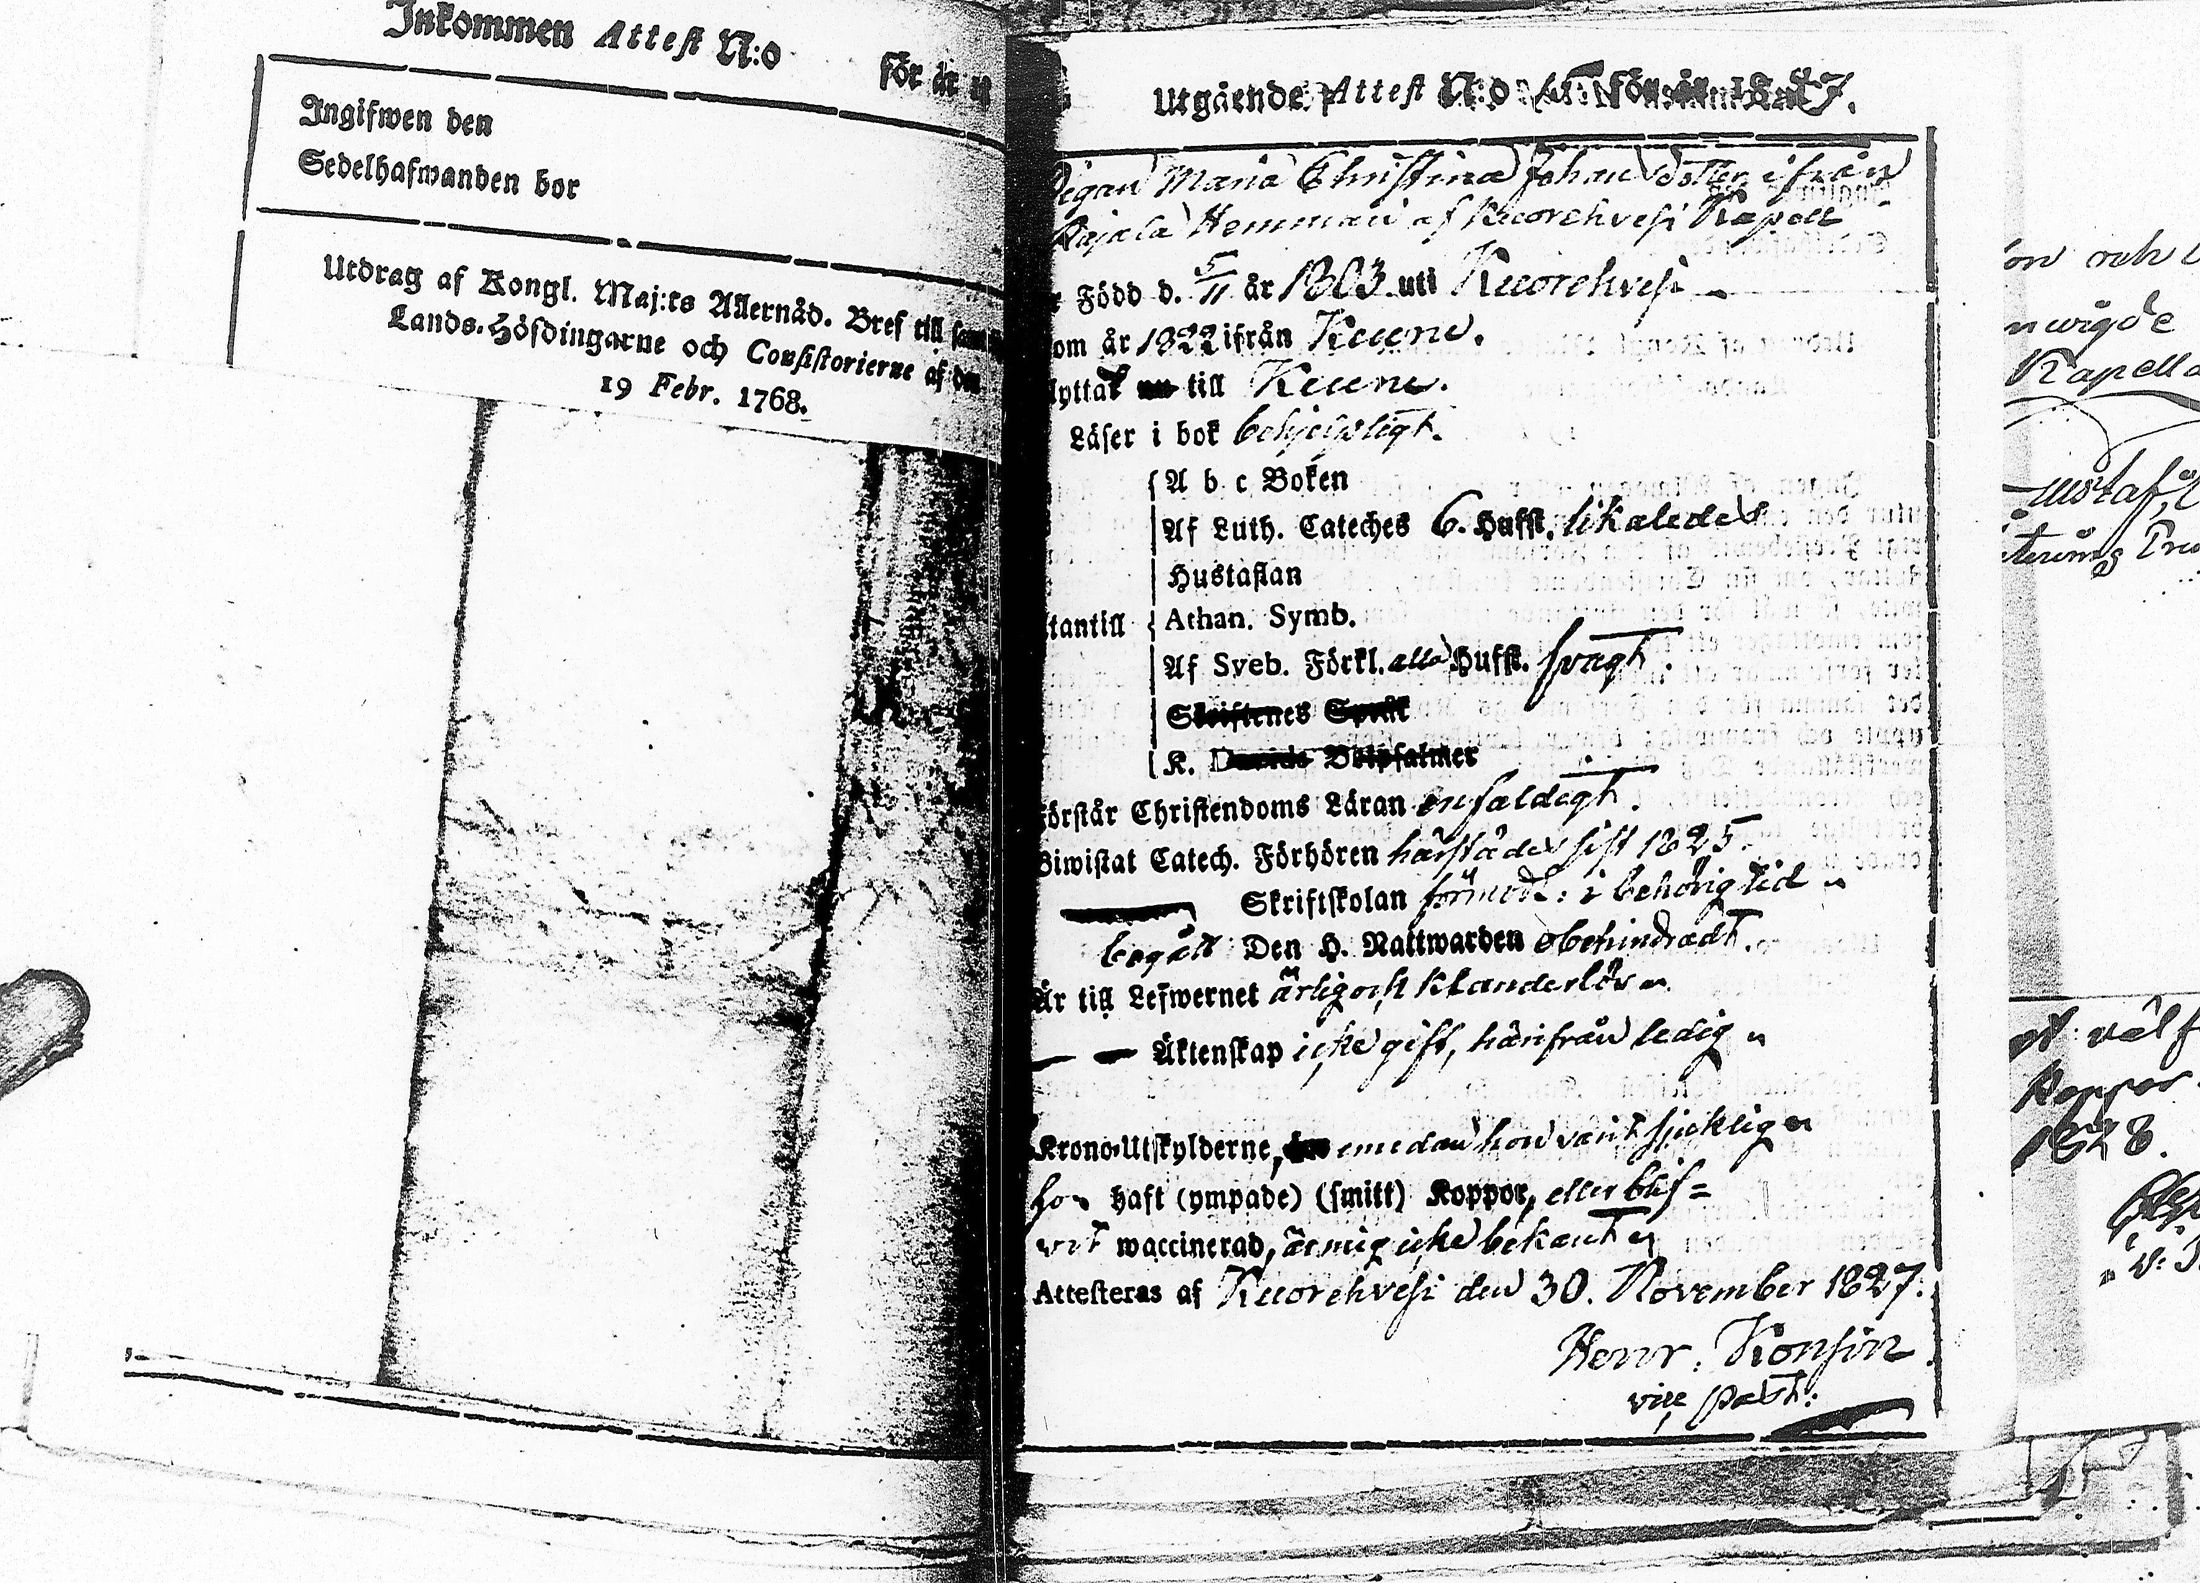 Inkommen Attest N:o för år
Ingifwen den
Sedelhafwanden bor
Utdrag af Kongl. Maj:ts Allernåd. Bref till
Lands-Höfdingarne och Consistorierne af den
19 Febr. 1768.
Utgående Attest N:o för år 1827.
Pigan Maria Christina Johansdotter ifrån
Rajala Hemman af Kuorehvesi Kapell
Född d. 5/11 år 1803 uti Kuorehvesi
om år 1822 ifrån Keuru.
lyttat till Keuru.
Läser i bok behjelpligt.
A b c Boken
Af Luth. Cateches 6. Hufst. likaledes
Hustaflan
tantill Athan. Symb.
Af Sveb. Förkl. alla Hufst. svagt.
Skriftenes Språk
K. Davids Botpsalmer
Förstår Christendoms Läran enfaldigt.
Biwistat Catech. Förhören härstädes sist 1825.
Skriftskolan förmod: i behörig tid
begått Den H. Nattwarden obehindradt.
Är till Lefwernet ärlig och klanderlös
Äktenskap icke gift, härifrån ledig
Krono-Utskylderne, emedan hon varit sjuklig
haft (ympade) (smitt) Koppor, eller blif=
vit waccinerad, är mig icke bekant
Attesteras af Kuorehvesi den 30. November 1827.
Henr. Konsin
vice past:
och
wigde
Kapella
ustaf
väl
Koppor
1828.